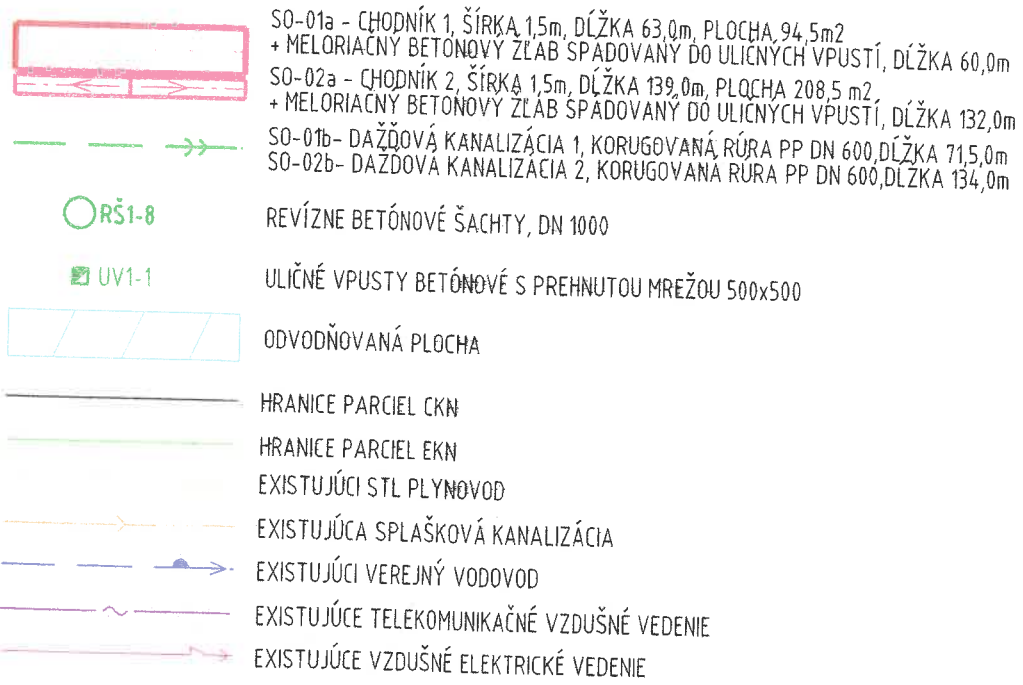 SO-01a - CHODNÍK 1, ŠÍRKA 1,5m, DĹŽKA 63,0m, PLOCHA 94,5m2
+ MELORIAČNÝ BETÓNOVÝ ŽĽAB SPÁDOVANÝ DO ULIČNÝCH VPUSTÍ, DĹŽKA 60,0m
SO-02a - CHODNÍK 2, ŠÍRKA 1,5m, DĹŽKA 139,0m, PLOCHA 208,5 m2,
+ MELORIAČNÝ BETÓNOVÝ ŽĽAB SPÁDOVANÝ DO ULIČNÝCH VPUSTÍ, DĹŽKA 132,0m
SO-01b- DAŽĎOVÁ KANALIZÁCIA 1, KORUGOVANÁ RÚRA PP DN 600,DĹŽKA 71,5,0m
SO-02b- DAŽĎOVÁ KANALIZÁCIA 2, KORUGOVANÁ RÚRA PP DN 600,DĹŽKA 134,0m
RŠ1-8 REVÍZNE BETÓNOVÉ ŠACHTY, DN 1000
UV1-1 ULIČNÉ VPUSTY BETÓNOVÉ S PREHNUTOU MREŽOU 500x500
ODVODŇOVANÁ PLOCHA
HRANICE PARCIEL CKN
HRANICE PARCIEL EKN
EXISTUJÚCI STL PLYNOVOD
EXISTUJÚCA SPLAŠKOVÁ KANALIZÁCIA
EXISTUJÚCI VEREJNÝ VODOVOD
EXISTUJÚCE TELEKOMUNIKAČNÉ VZDUŠNÉ VEDENIE
EXISTUJÚCE VZDUŠNÉ ELEKTRICKÉ VEDENIE